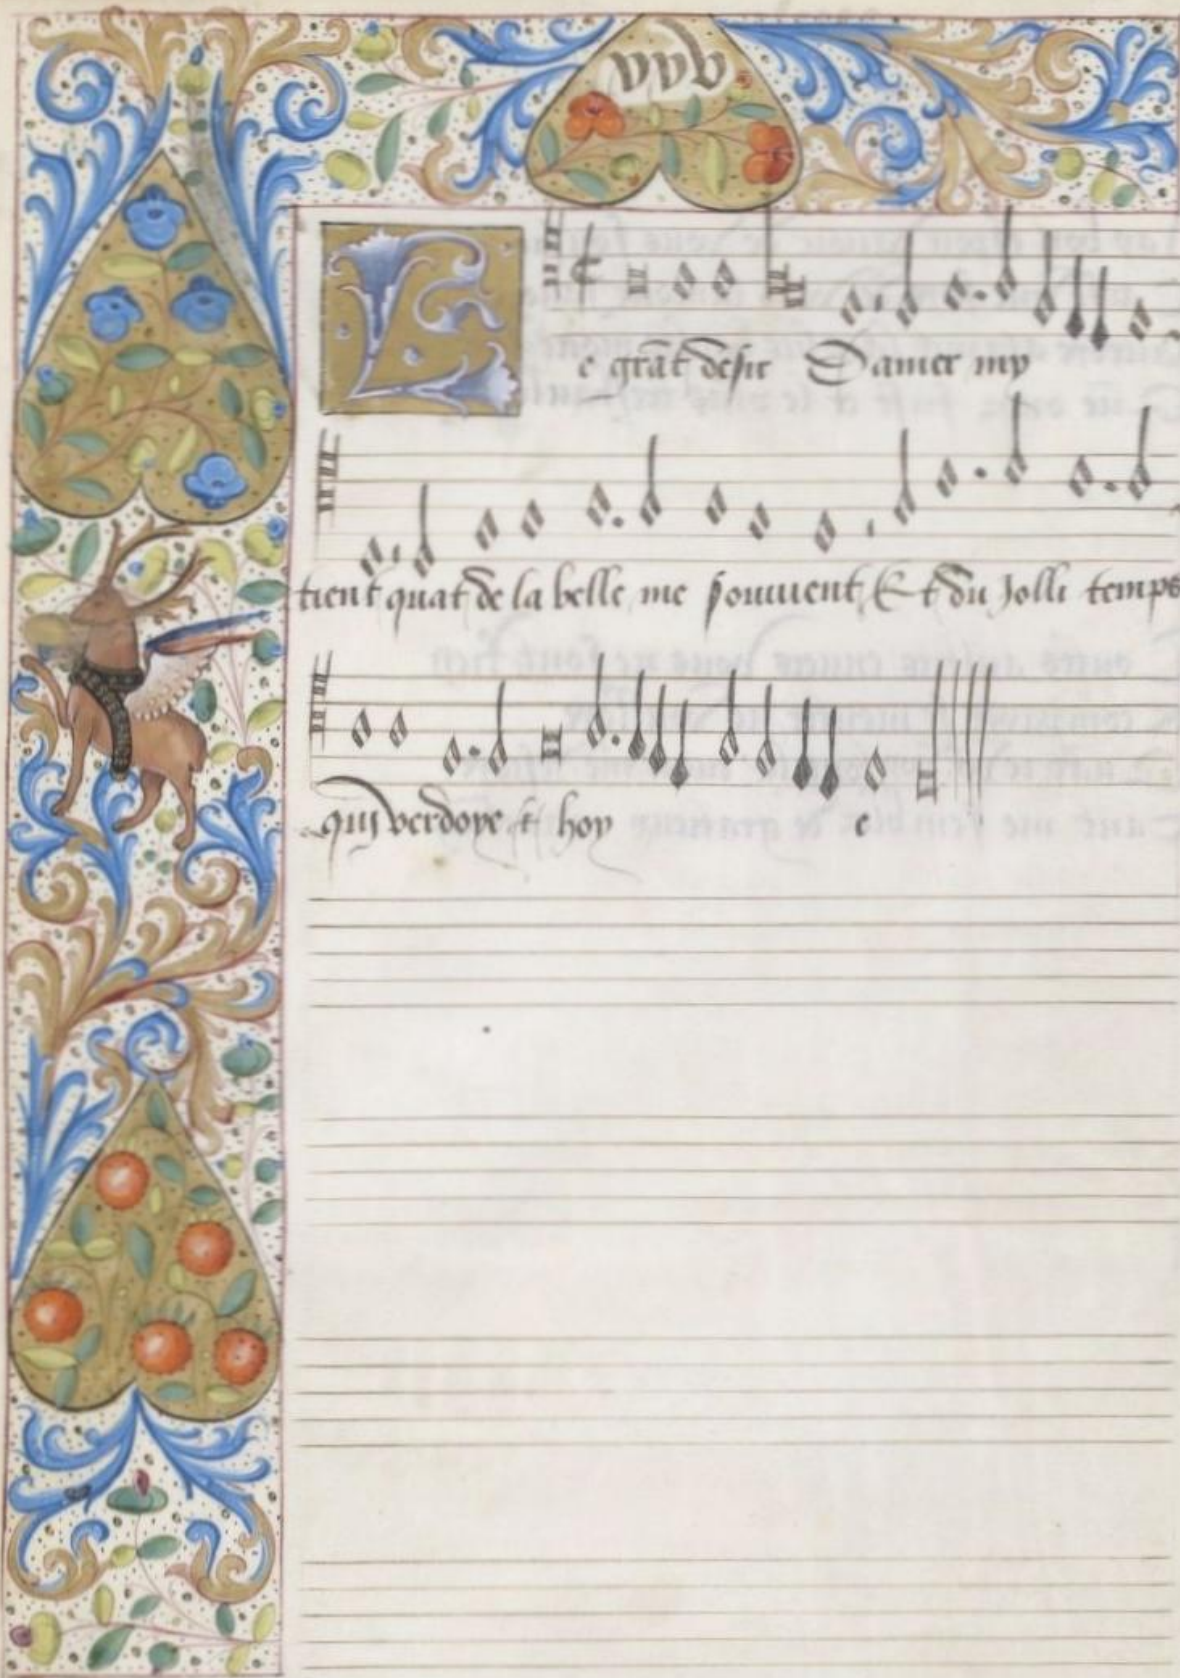 Le grāt desir Damer my
tient quāt de la belle me souvient Et du Jolli temps
quj verdoye et hoy e